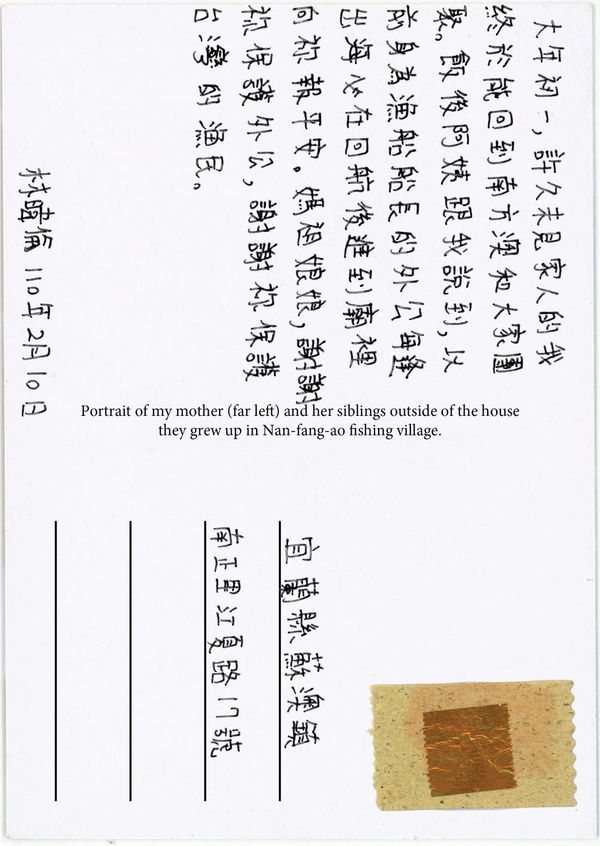 大年初一，許久未見家人的我
終於能回到南方澳和大家團
聚。飯後阿姨跟我說到，以
前身為漁船船長的外公每逢
出海必在回航後進到廟裡
向祢報平安。媽祖娘娘，謝謝
祢保護外公，謝謝祢保護
台灣的漁民。
110年2月10日
Portrait of my mother (far left) and her siblings outside of the house
they grew up in Nan-fang-ao fishing village.
宜蘭縣蘇澳鎮
南正里江夏路17號